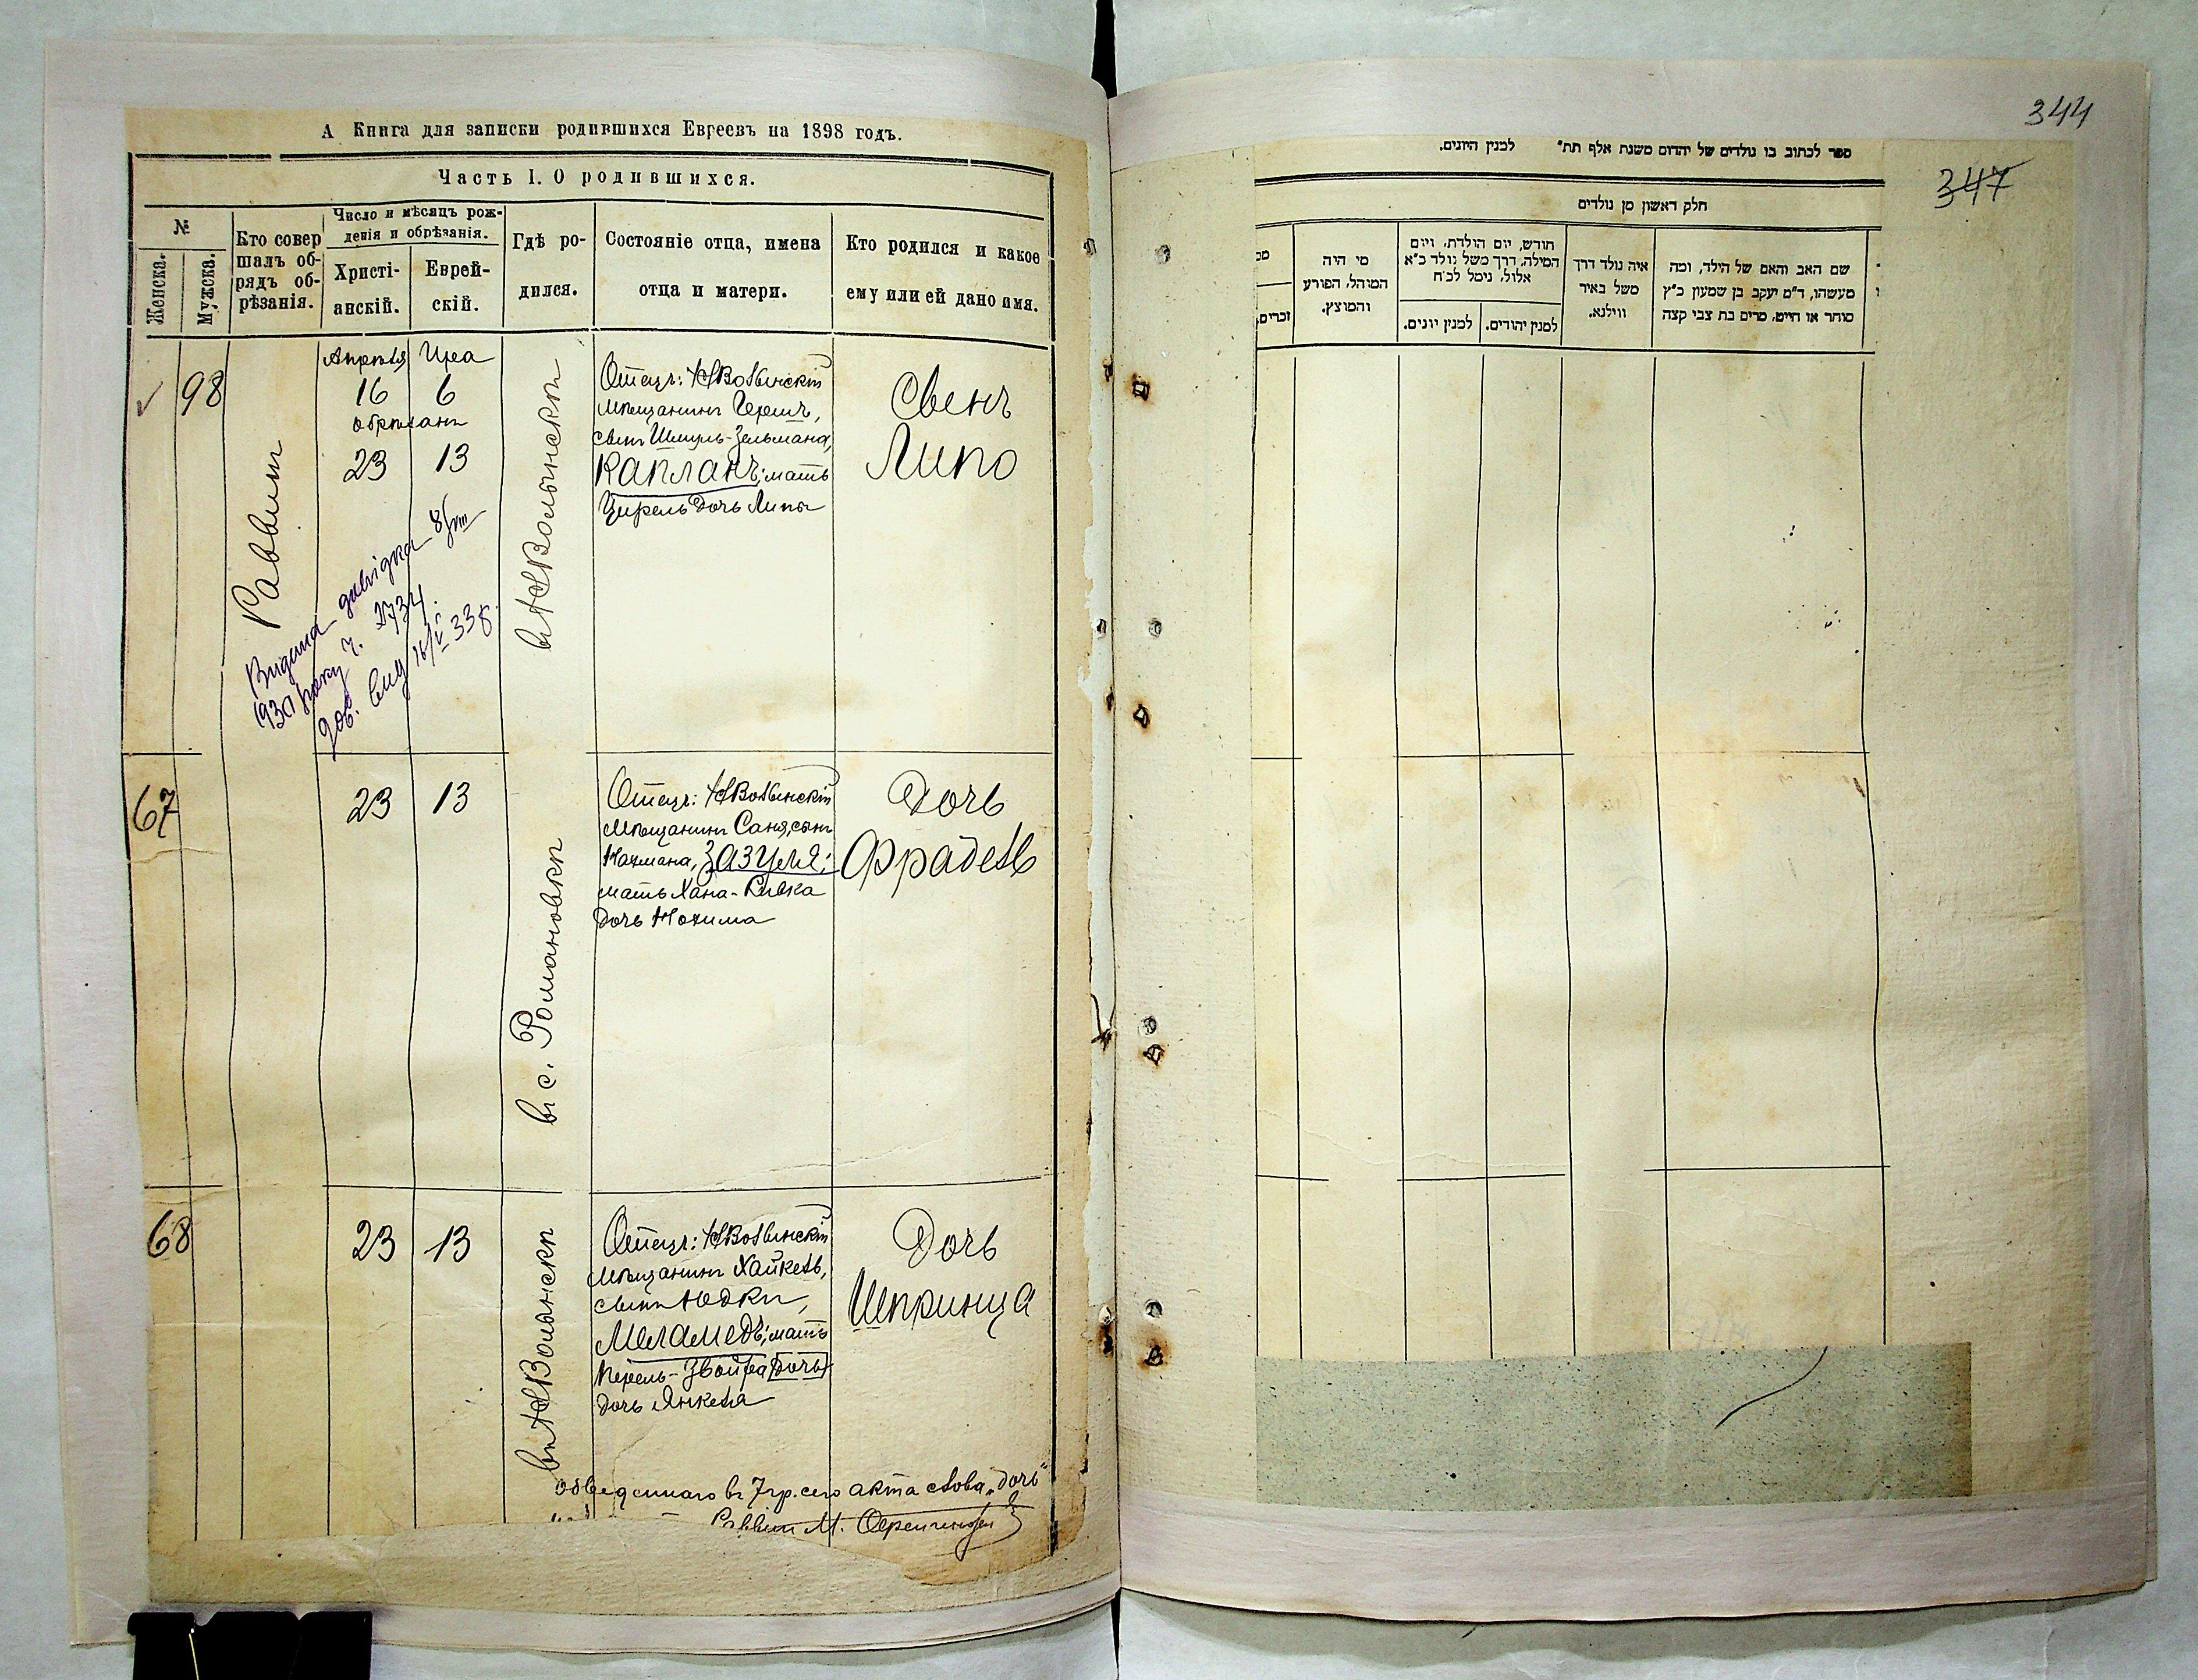 А Книга для записки родившихся Евреевъ на 1898 годъ.
Часть I. О родившихся.
№
Женска.
Мужска.
Кто совер
шалъ об-
рядъ об-
рѣзанія.
Число и мѣсяцъ рож-
денія и обрѣзанія.
Христі-
анскій.
Еврей-
скій.
Гдѣ ро-
дился.
Состояніе отца, имена
отца и матери.
Кто родился и какое
ему или ей дано имя.
98
Раввинъ
Апрѣля Ира
16 6
обрѣзанъ
23 13
Видана довідка 8/VIII
1930 року ч. 2734.
дов. вид 16/V 338.
въ НВолынскѣ
Отецъ: НВолынскій
мѣщанинъ Гершъ,
сынъ Шмуль-Зельмана,
Капланъ; мать
Цирель дочь Липы
Сынъ
Липо
67
23 13
въ с. Романовкѣ
Отецъ: НВолынскій
мѣщанинъ Саня, сынъ
Нахмана, Зазуля;
мать Хана-Ривка
дочь Нохима
Дочь
Фрадель
68
23 13
въ НВолынскѣ
Отецъ: НВолынскій
мѣщанинъ Хайкель,
сынъ Юдки,
Меламедъ; мать
Перель-Двойра дочь
дочь Янкеля
Дочь
Шпринца
обведеннаго въ 7 гр. сего акта слова „дочь"
Раввинъ М.
344
347
ספר לכתוב בו נולדים של יהדום משנת אלף תת" למנין היונים.
חלק ראשון מן נולדים
זכרים.
מי היה
המוהל, הפורע
והמוצץ.
חודש, יום הולדת, ויום
המילה, דרך משל נולד כ"א
אלול, נימל לכ"ח
למנין יונים.
למנין יהודים.
איה נולד דרך
משל באיר
ווילנא.
שם האב והאם של הילד, ומה
מעשהו, ד"מ יעקב בן שמעון כ"ץ
סוחר או חייט, מרים בת צבי קצה